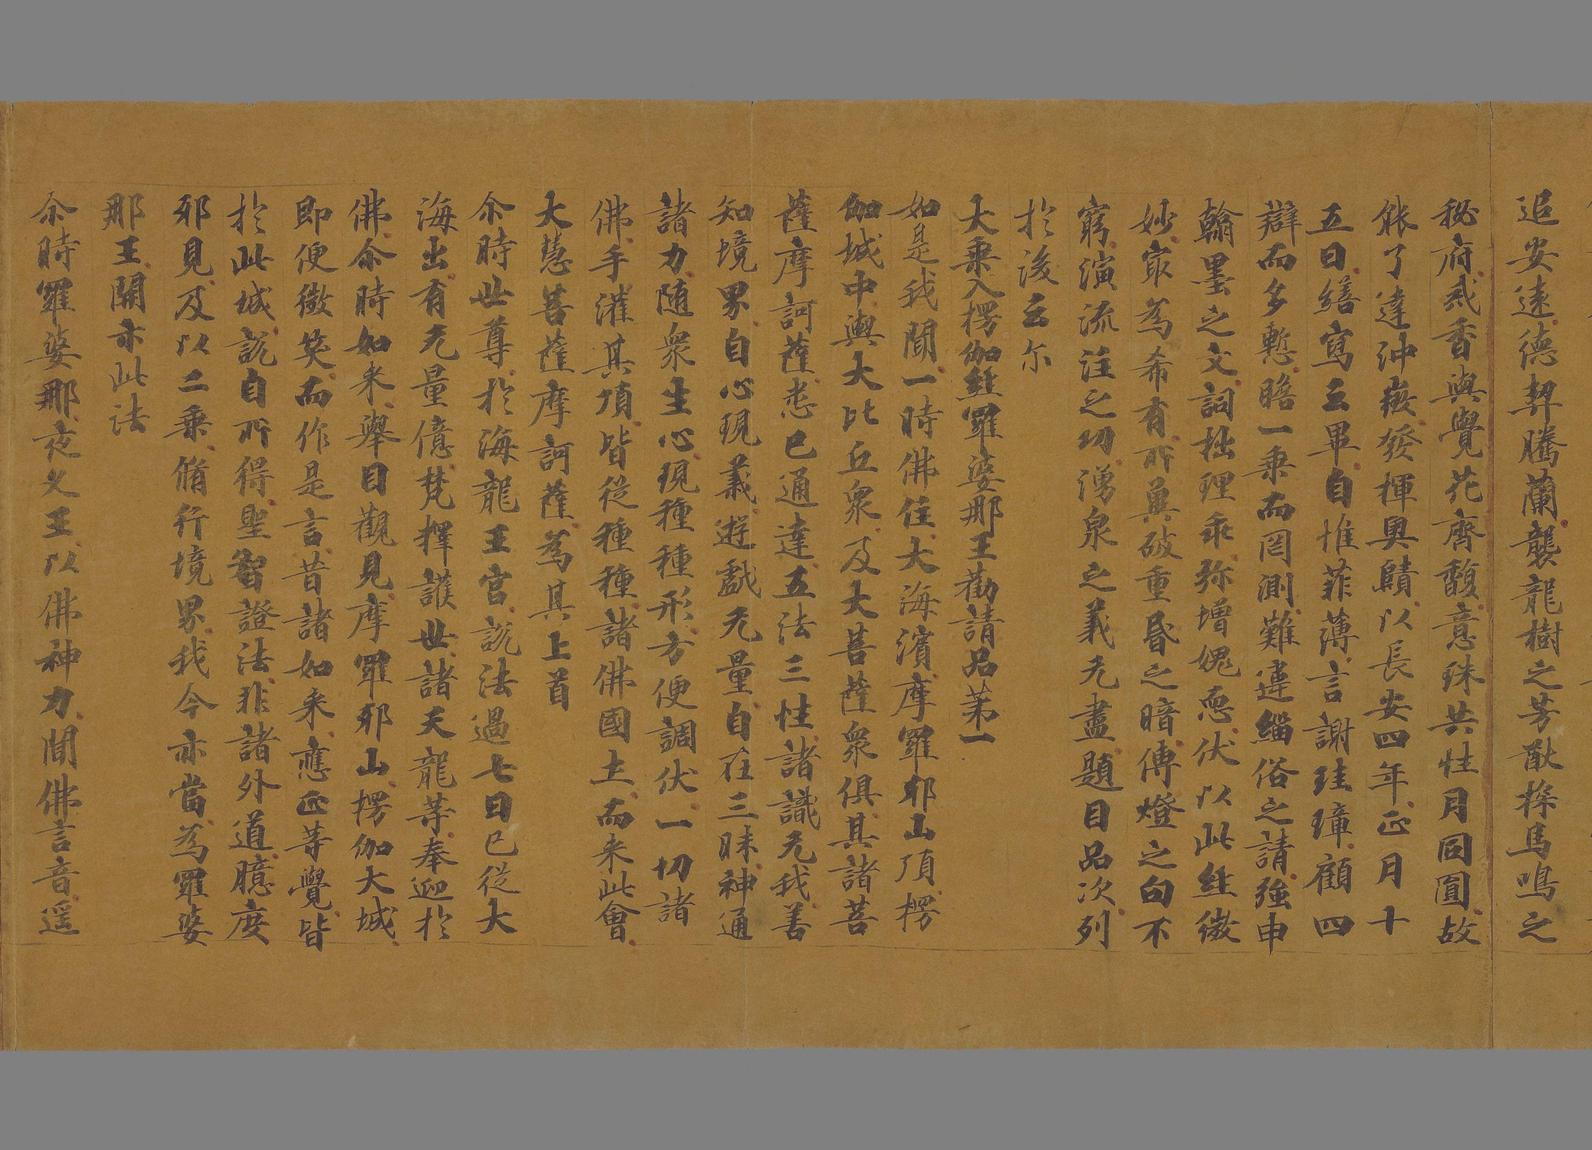 追安遠德契騰蘭襲龍樹之芳猷探馬鳴之
秘府戒香與覺花齊馥意珠共性月同圓故
能了達沖微發揮奧賾以長安四年正月十
五日繕寫云畢自惟菲薄言謝珪璋顧四
辯而多慙瞻一乘而罔測難違緇俗之請強申
翰墨之文詞拙理乖弥增媿恧伏以此經微
妙冣為希有所冀破重昏之暗傳燈之句不
窮演流注之功湧泉之義无盡題目品次列
於後云尓
大乘入楞伽經羅婆那王勸請品第一
如是我聞一時佛住大海濱摩羅耶山頂楞
伽城中與大比丘衆及大菩薩衆俱其諸菩
薩摩訶薩悉已通達五法三性諸識无我善
知境界自心現義遊戲无量自在三昧神通
諸力随衆生心現種種形方便調伏一切諸
佛手灌其頂皆從種種諸佛國土而来此會
大慧菩薩摩訶薩為其上首
尒時世尊於海龍王宮說法過七日已從大
海出有无量億梵釋護世諸天龍等奉迎於
佛尒時如来舉目觀見摩羅耶山楞伽大城
即便微笑而作是言昔諸如来應正等覺皆
於此城說自所得聖智證法非諸外道臆度
邪見及以二乘脩行境界我今亦當為羅婆
那王開示此法
尒時羅婆那夜叉王以佛神力聞佛言音遥